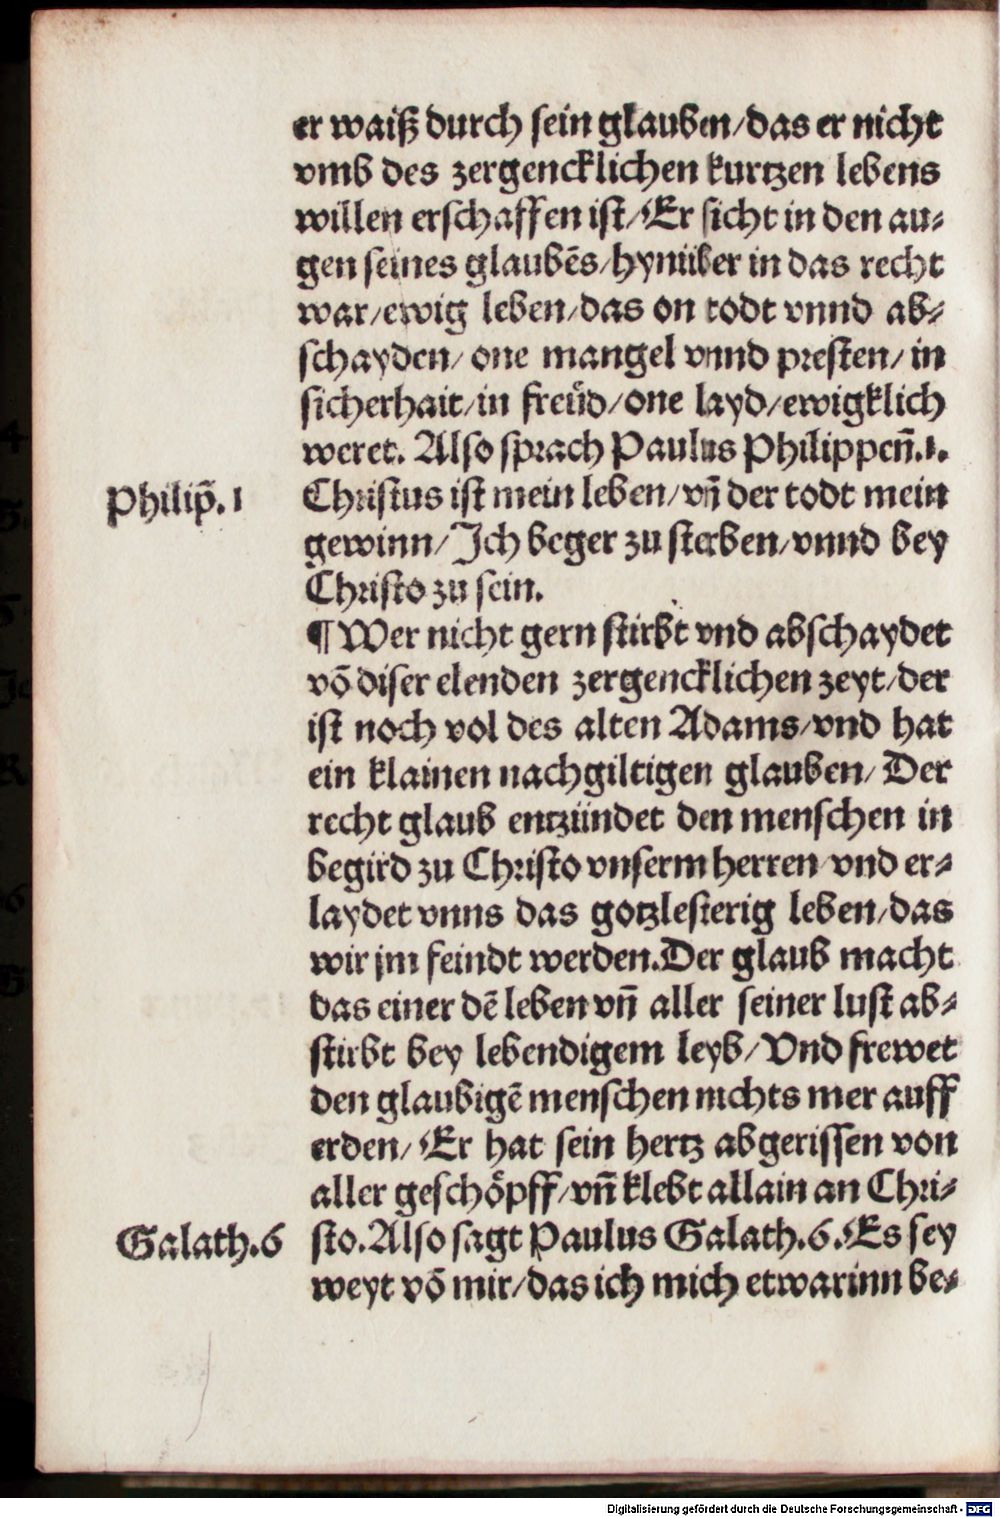 er waiß durch sein glauben/das er nicht
vmb des zergencklichen kurtzen lebens
willen erschaffen ist/Er sicht in den au⸗
gen seines glaubēs/hynüber in das recht
war/ewig leben/das on todt vnnd ab⸗
schayden/ one mangel vnnd presten/ in
sicherhait/in freüd/one layd/ewigklich
weret. Also sprach Paulus Philippen̄.1.
Philip̄. 1 Christus ist mein leben/vn̄ der todt mein
gewinn/Ich beger zu sterben/vnnd bey
Christo zu sein.
¶ Wer nicht gern stirbt vnd abschaydet
vō diser elenden zergencklichen zeyt/der
ist noch vol des alten Adams/vnd hat
ein klainen nachgiltigen glauben/ Der
recht glaub entzündet den menschen in
begird zu Christo vnserm herren/vnd er⸗
laydet vnns das gotzlesterig leben/das
wir jm feindt werden.Der glaub macht
das einer dē leben vn̄ aller seiner lust ab⸗
stirbt bey lebendigem leyb/Vnd frewet
den glaubigē menschen nichts mer auff
erden/ Er hat sein hertz abgerissen von
aller geschöpff/vn̄ klebt allain an Chri⸗
Galath.6 sto.Also sagt Paulus Galath.6.Es sey
weyt vō mir/das ich mich etwarinn be⸗
Digitalisierung gefördert durch die Deutsche Forschungsgemeinschaft - DFG